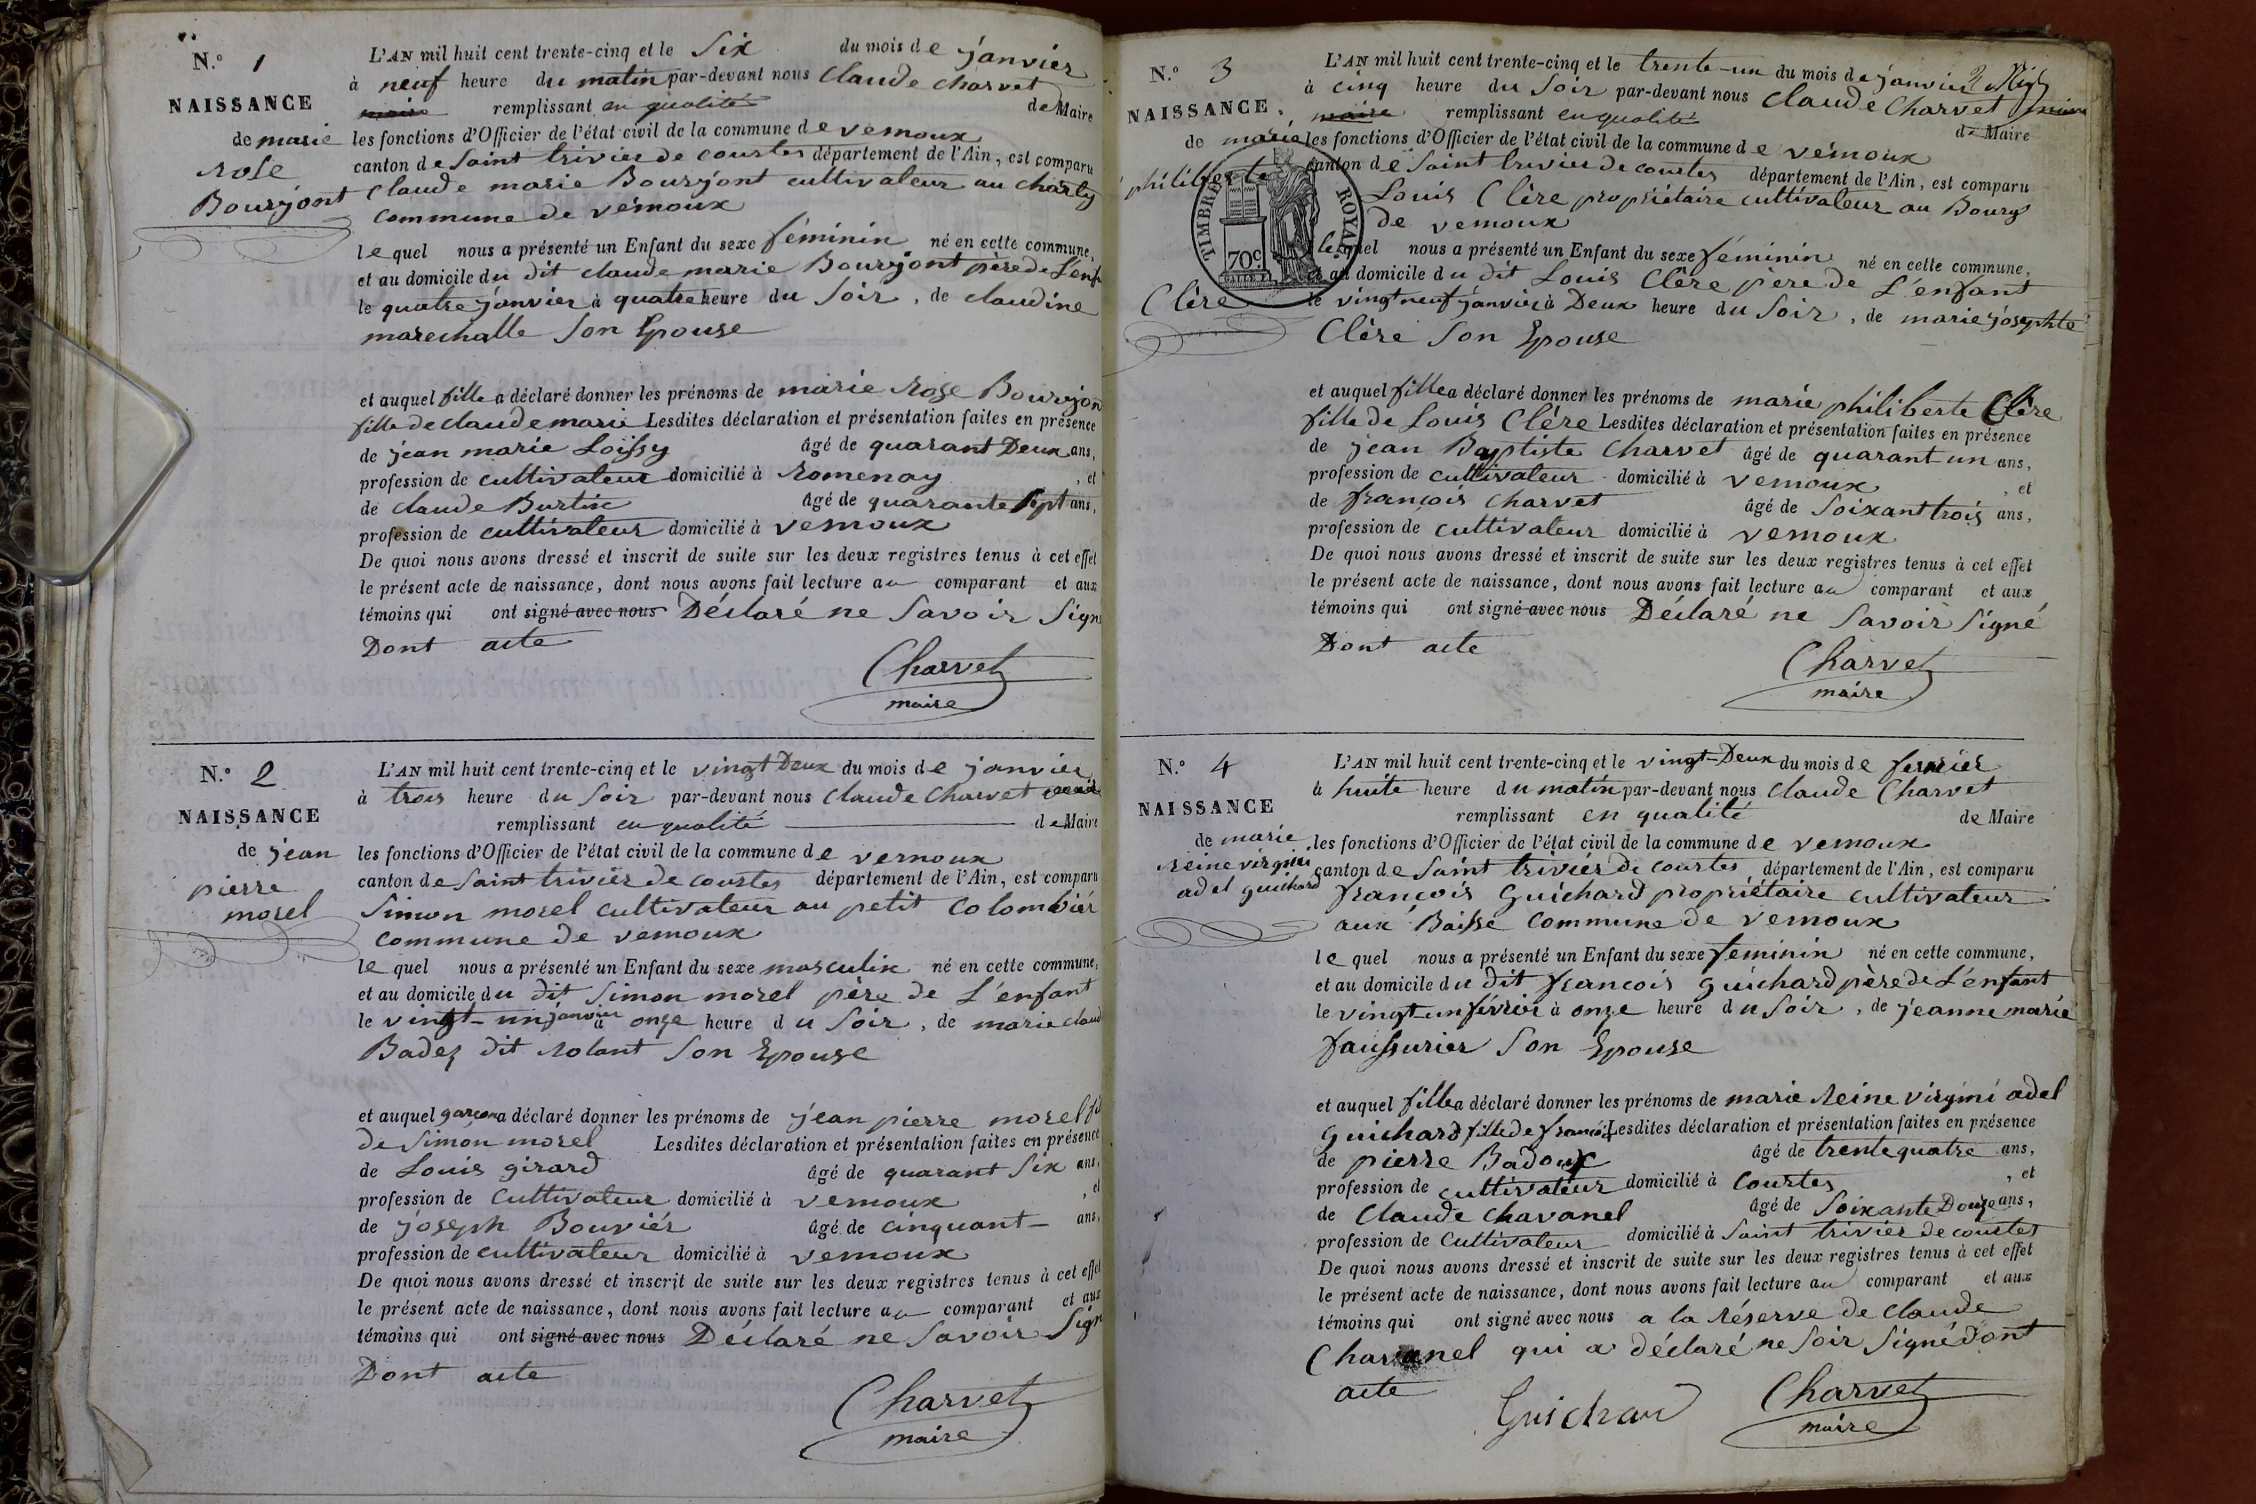 N.º 1
L'AN mil huit cent trente-cinq et le Six du mois de janvier
à neuf heure du matin par-devant nous Claude Charvet
NAISSANCE
maire remplissant en qualité de Maire
de marie les fonctions d'Officier de l'état civil de la commune de vernoux
rose canton de Saint trivier de courtes département de l'Ain, est comparu
Bourjont Claude marie Bourjont cultivateur au charly
commune de vernoux
lequel nous a présenté un Enfant du sexe féminin né en cette commune,
et au domicile du dit claude marie Bourjont père de L'enf
le quatre janvier à quatre heure du Soir, de claudine
marechalle Son Epouse
et auquel fille a déclaré donner les prénoms de marie Rose Bourjon
fille de claude marie Lesdites déclaration et présentation faites en présence
de jean marie Loissy âgé de quarant Deux ans,
profession de cultivateur domicilié à Romenay, et
de claude Burtin âgé de quarante sept ans,
profession de cultivateur domicilié à vernoux
De quoi nous avons dressé et inscrit de suite sur les deux registres tenus à cet effet
le présent acte de naissance, dont nous avons fait lecture au comparant et aux
témoins qui ont signé avec nous Déclaré ne Savoir Sign
Dont acte
Charvet
maire
N.º 2
L'AN mil huit cent trente-cinq et le vingt Deux du mois de janvier
à trois heure du Soir par-devant nous Claude Charvet
NAISSANCE
remplissant en qualité de Maire
de jean les fonctions d'Officier de l'état civil de la commune de vernoux
pierre canton de Saint trivier de courtes département de l'Ain, est comparu
morel Simon morel cultivateur au petit Colombier
commune de vernoux
lequel nous a présenté un Enfant du sexe masculin né en cette commune,
et au domicile du dit Simon morel père de L'enfant
le vingt-un janvier à onze heure du Soir, de marie claud
Badez dit rolant Son Epouse
et auquel garçon a déclaré donner les prénoms de jean pierre morel fi
de Simon morel Lesdites déclaration et présentation faites en présence
de Louis girard âgé de quarant Six ans,
profession de cultivateur domicilié à vernoux, et
de joseph Bouvier âgé de cinquant ans,
profession de cultivateur domicilié à vernoux
De quoi nous avons dressé et inscrit de suite sur les deux registres tenus à cet effet
le présent acte de naissance, dont nous avons fait lecture au comparant et aux
témoins qui ont signé avec nous Déclaré ne Savoir Sign
Dont acte
Charvet
maire
N.º 3
L'AN mil huit cent trente-cinq et le trente-un du mois de janvier
à cinq heure du Soir par-devant nous Claude Charvet
NAISSANCE.
maire remplissant en qualité de Maire
de marie les fonctions d'Officier de l'état civil de la commune de vernoux
philiberte canton de Saint trivier de courtes département de l'Ain, est comparu
Louis Clère propriétaire cultivateur au Bourg
de vernoux
TIMBRE ROYAL
70c
lequel nous a présenté un Enfant du sexe féminin né en cette commune,
et au domicile du dit Louis Clère père de L'enfant
Clère le vingt neuf janvier à Deux heure du Soir, de marie josephte
Clère Son Epouse
et auquel fille a déclaré donner les prénoms de marie philiberte Clère
fille de Louis Clère Lesdites déclaration et présentation faites en présence
de jean Baptiste Charvet âgé de quarant un ans,
profession de cultivateur domicilié à vernoux, et
de françois Charvet âgé de Soixant trois ans,
profession de cultivateur domicilié à vernoux
De quoi nous avons dressé et inscrit de suite sur les deux registres tenus à cet effet
le présent acte de naissance, dont nous avons fait lecture au comparant et aux
témoins qui ont signé avec nous Déclaré ne Savoir Signé
Dont acte
Charvet
maire
N.º 4
L'AN mil huit cent trente-cinq et le vingt-Deux du mois de fevrier
à huite heure du matin par-devant nous Claude Charvet
NAISSANCE
remplissant en qualité de Maire
de marie les fonctions d'Officier de l'état civil de la commune de vernoux
reine virgini canton de Saint trivier de courtes département de l'Ain, est comparu
adel guichard françois Guichard propriétaire cultivateur
aux Baisse Commune de vernoux
lequel nous a présenté un Enfant du sexe feminin né en cette commune,
et au domicile du dit françois Guichard père de L'enfant
le vingt-un février à onze heure du Soir, de jeanne marie
faussurier Son Epouse
et auquel fille a déclaré donner les prénoms de marie Reine virgini adel
Guichard fille de françois Lesdites déclaration et présentation faites en présence
de pierre Badoux âgé de trente quatre ans,
profession de cultivateur domicilié à Courtes, et
de Claude Chavanel âgé de Soixante Douze ans,
profession de Cultivateur domicilié à Saint trivier de courtes
De quoi nous avons dressé et inscrit de suite sur les deux registres tenus à cet effet
le présent acte de naissance, dont nous avons fait lecture au comparant et aux
témoins qui ont signé avec nous a la Réserve de Claude
Chavanel qui a déclaré ne Soir Signé Dont
acte
Guichard Charvet
maire